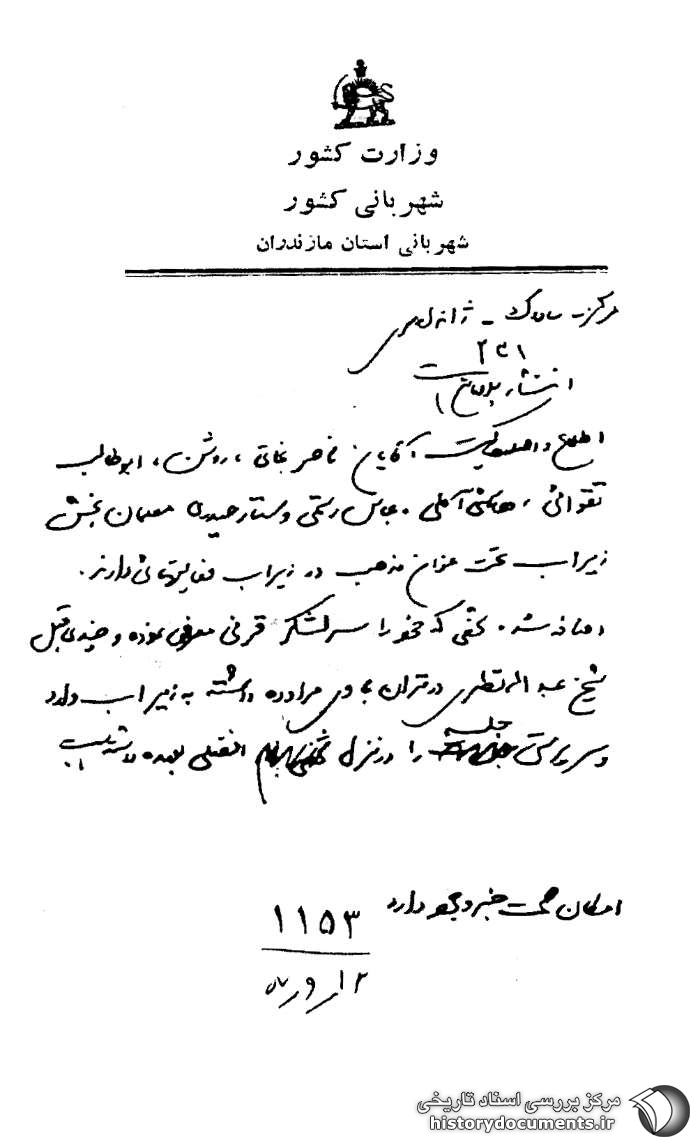 وزارت کشور
شهربانی کشور
شهربانی استان مازندران
مرکز - ساواک -
۲۳۱
انتشار
اطلاع واصله حاکیست آقایان ناصر ، روشن ، ابوطالب
تقوائی ، هاشمی آملی ، عباس رستمی و ستار حیدری معلمان بخش
زیراب تحت عنوان مذهب در زیراب فعالیتهائی دارند .
اضافه شد . شخصی که خود را سرلشکر قرنی معرفی نموده و چندی قبل
شیخ عبداله نظری در تهران با وی مراوده داشته به زیراب وارد
و سرپرستی جلسه را در منزل بعهده داشته
امکان صحت خبر وجود دارد
۱۱۵۳
مرکز بررسی اسناد تاریخی
historydocuments.ir